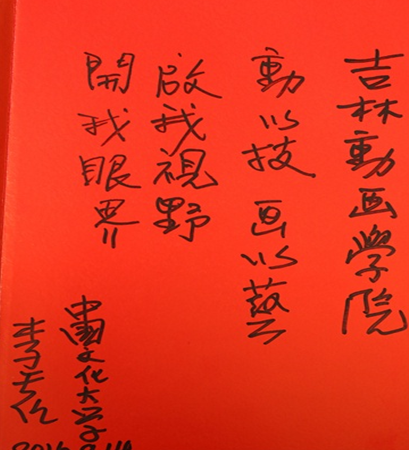 吉林動画學院
動以技 画以藝
啟我視野
開我眼界
中國文化大学
李天任